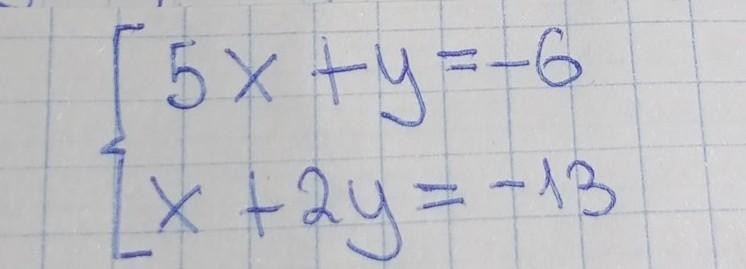 5x + y = -6
x + 2y = -13